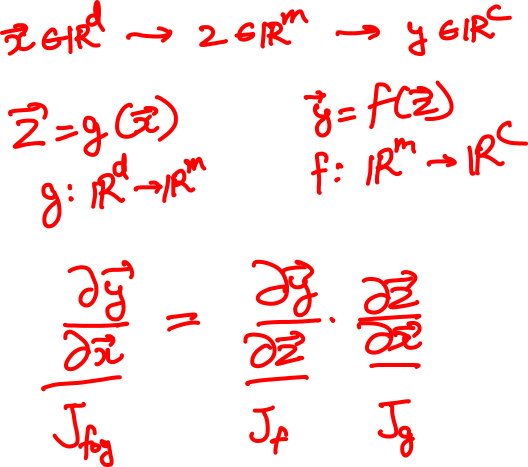 x⃗ ∈ ℝᵈ → z ∈ ℝᵐ → y ∈ ℝᶜ
z⃗ = g(x⃗) y⃗ = f(z⃗)
g: ℝᵈ → ℝᵐ f: ℝᵐ → ℝᶜ
∂y⃗/∂x⃗ = ∂y⃗/∂z⃗ · ∂z⃗/∂x⃗
J_{f∘g} J_f J_g